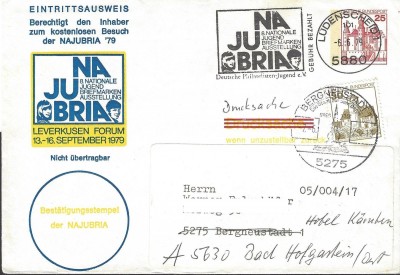 EINTRITTSAUSWEIS
Berechtigt den Inhaber
zum kostenlosen Besuch
der NAJUBRIA '79
NA
JU
BRIA
8. NATIONALE
JUGEND
BRIEFMARKEN
AUSSTELLUNG
LEVERKUSEN FORUM
13.-16. SEPTEMBER 1979
Nicht übertragbar
Bestätigungsstempel
der NAJUBRIA
NA
JU
BRIA
8. NATIONALE
JUGEND
BRIEFMARKEN
AUSSTELLUNG
Deutsche Philatelisten-Jugend e.V.
GEBÜHR BEZAHLT
LÜDENSCHEID
101
-6.-6.79
5880
25
Drucksache
wenn unzustellbar zurück
BERGNEUSTADT
5275
Herrn
05/004/17
5275 Bergneustadt 1
Hotel Kärnten
A 5630 Bad Hofgastein/Öst